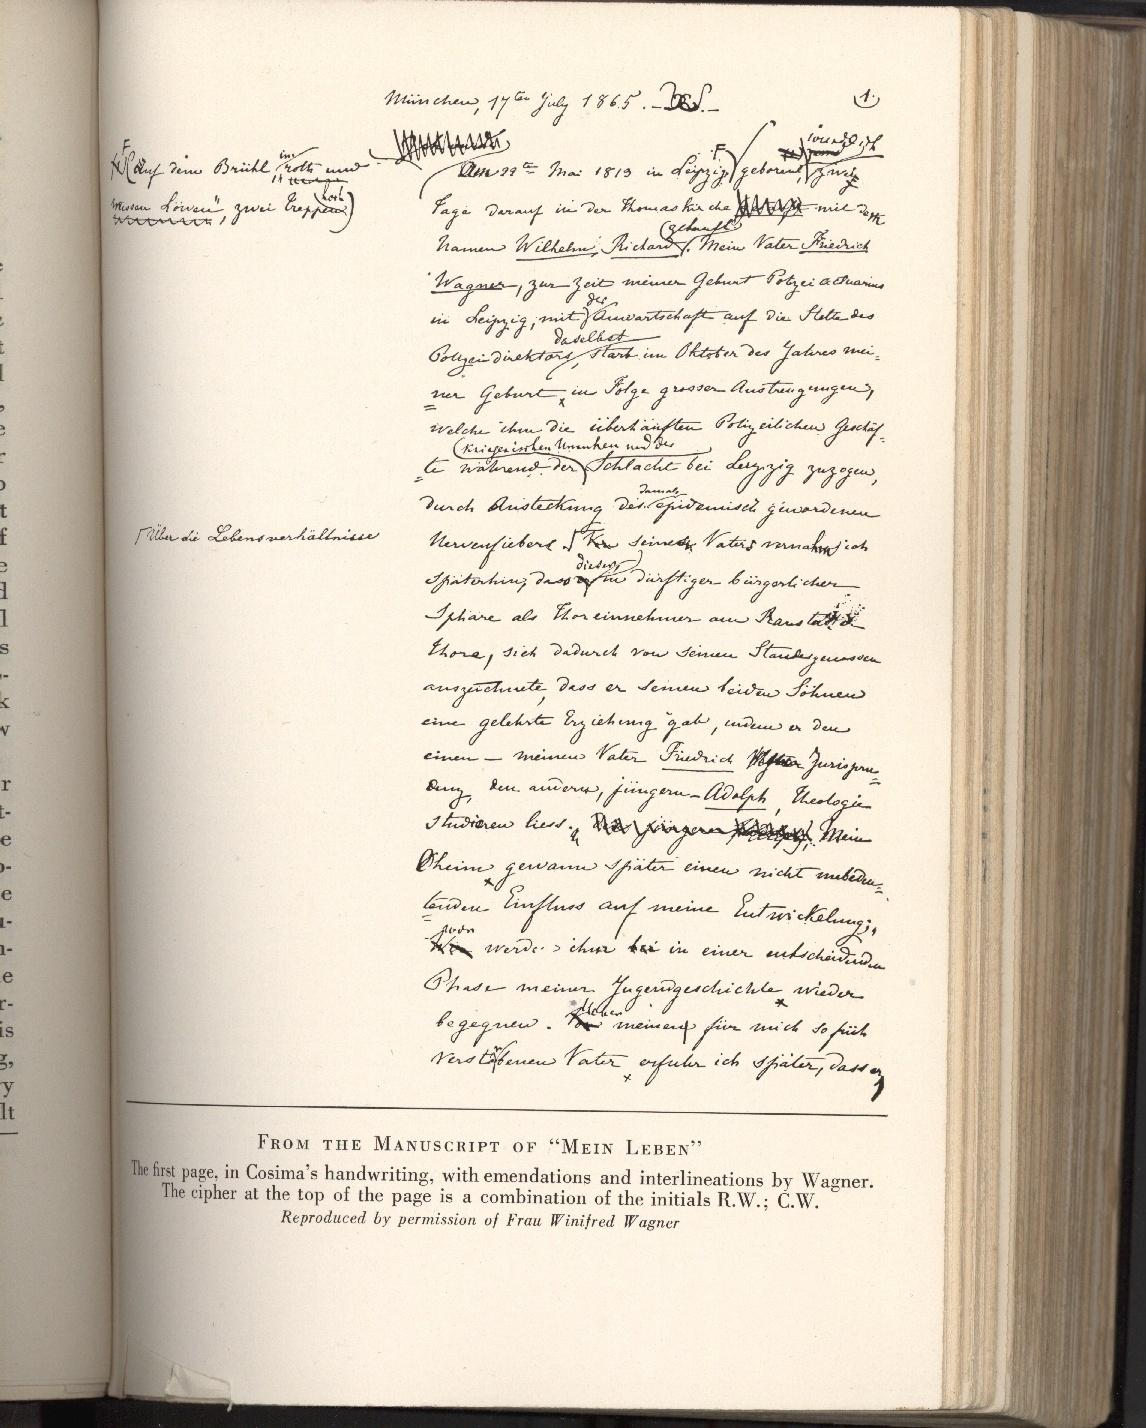 München, 17ten July 1865.
1.
auf dem Brühl im "roth und
weissen Löwen", zwei Treppen hoch)
Am 22ten Mai 1813 in Leipzig geboren, zwei
Tage darauf in der Thomaskirche mit dem
getauft
Namen Wilhelm Richard. Mein Vater Friedrich
Wagner, zur Zeit meiner Geburt Polizeiactuarius
der
in Leipzig, mit Anwartschaft auf die Stelle des
daselbst
Polizeidirektors, starb im Oktober des Jahres mei=
ner Geburt, in Folge grosser Anstrengungen,
welche ihm die überhäuften Polizeilichen Geschäf=
kriegerischen Unruhen und der
te während der Schlacht bei Leipzig zuzogen,
damals
durch Ansteckung des epidemisch gewordenen
Über die Lebensverhältnisse
Nervenfiebers. seines Vaters vernahm ich
dieser
späterhin, dass in dürftiger bürgerlicher
Sphäre als Thoreinnehmer am Ranstädter
Thore, sich dadurch von seinen Standesgenossen
auszeichnete, dass er seinen beiden Söhnen
eine gelehrte Erziehung gab, indem er den
einen — meinen Vater Friedrich Jurispru=
denz, den andern, jüngern — Adolph, Theologie
studieren liess. Mein
Oheim gewann später einen nicht unbedeu=
tenden Einfluss auf meine Entwickelung;
wir werden ihm in einer entscheidenden
Phase meiner Jugendgeschichte wieder
Ueber
begegnen. meinen für mich so früh
verstorbenen Vater erfuhr ich später, dass er
From the Manuscript of "Mein Leben"
The first page, in Cosima's handwriting, with emendations and interlineations by Wagner.
The cipher at the top of the page is a combination of the initials R.W.; C.W.
Reproduced by permission of Frau Winifred Wagner